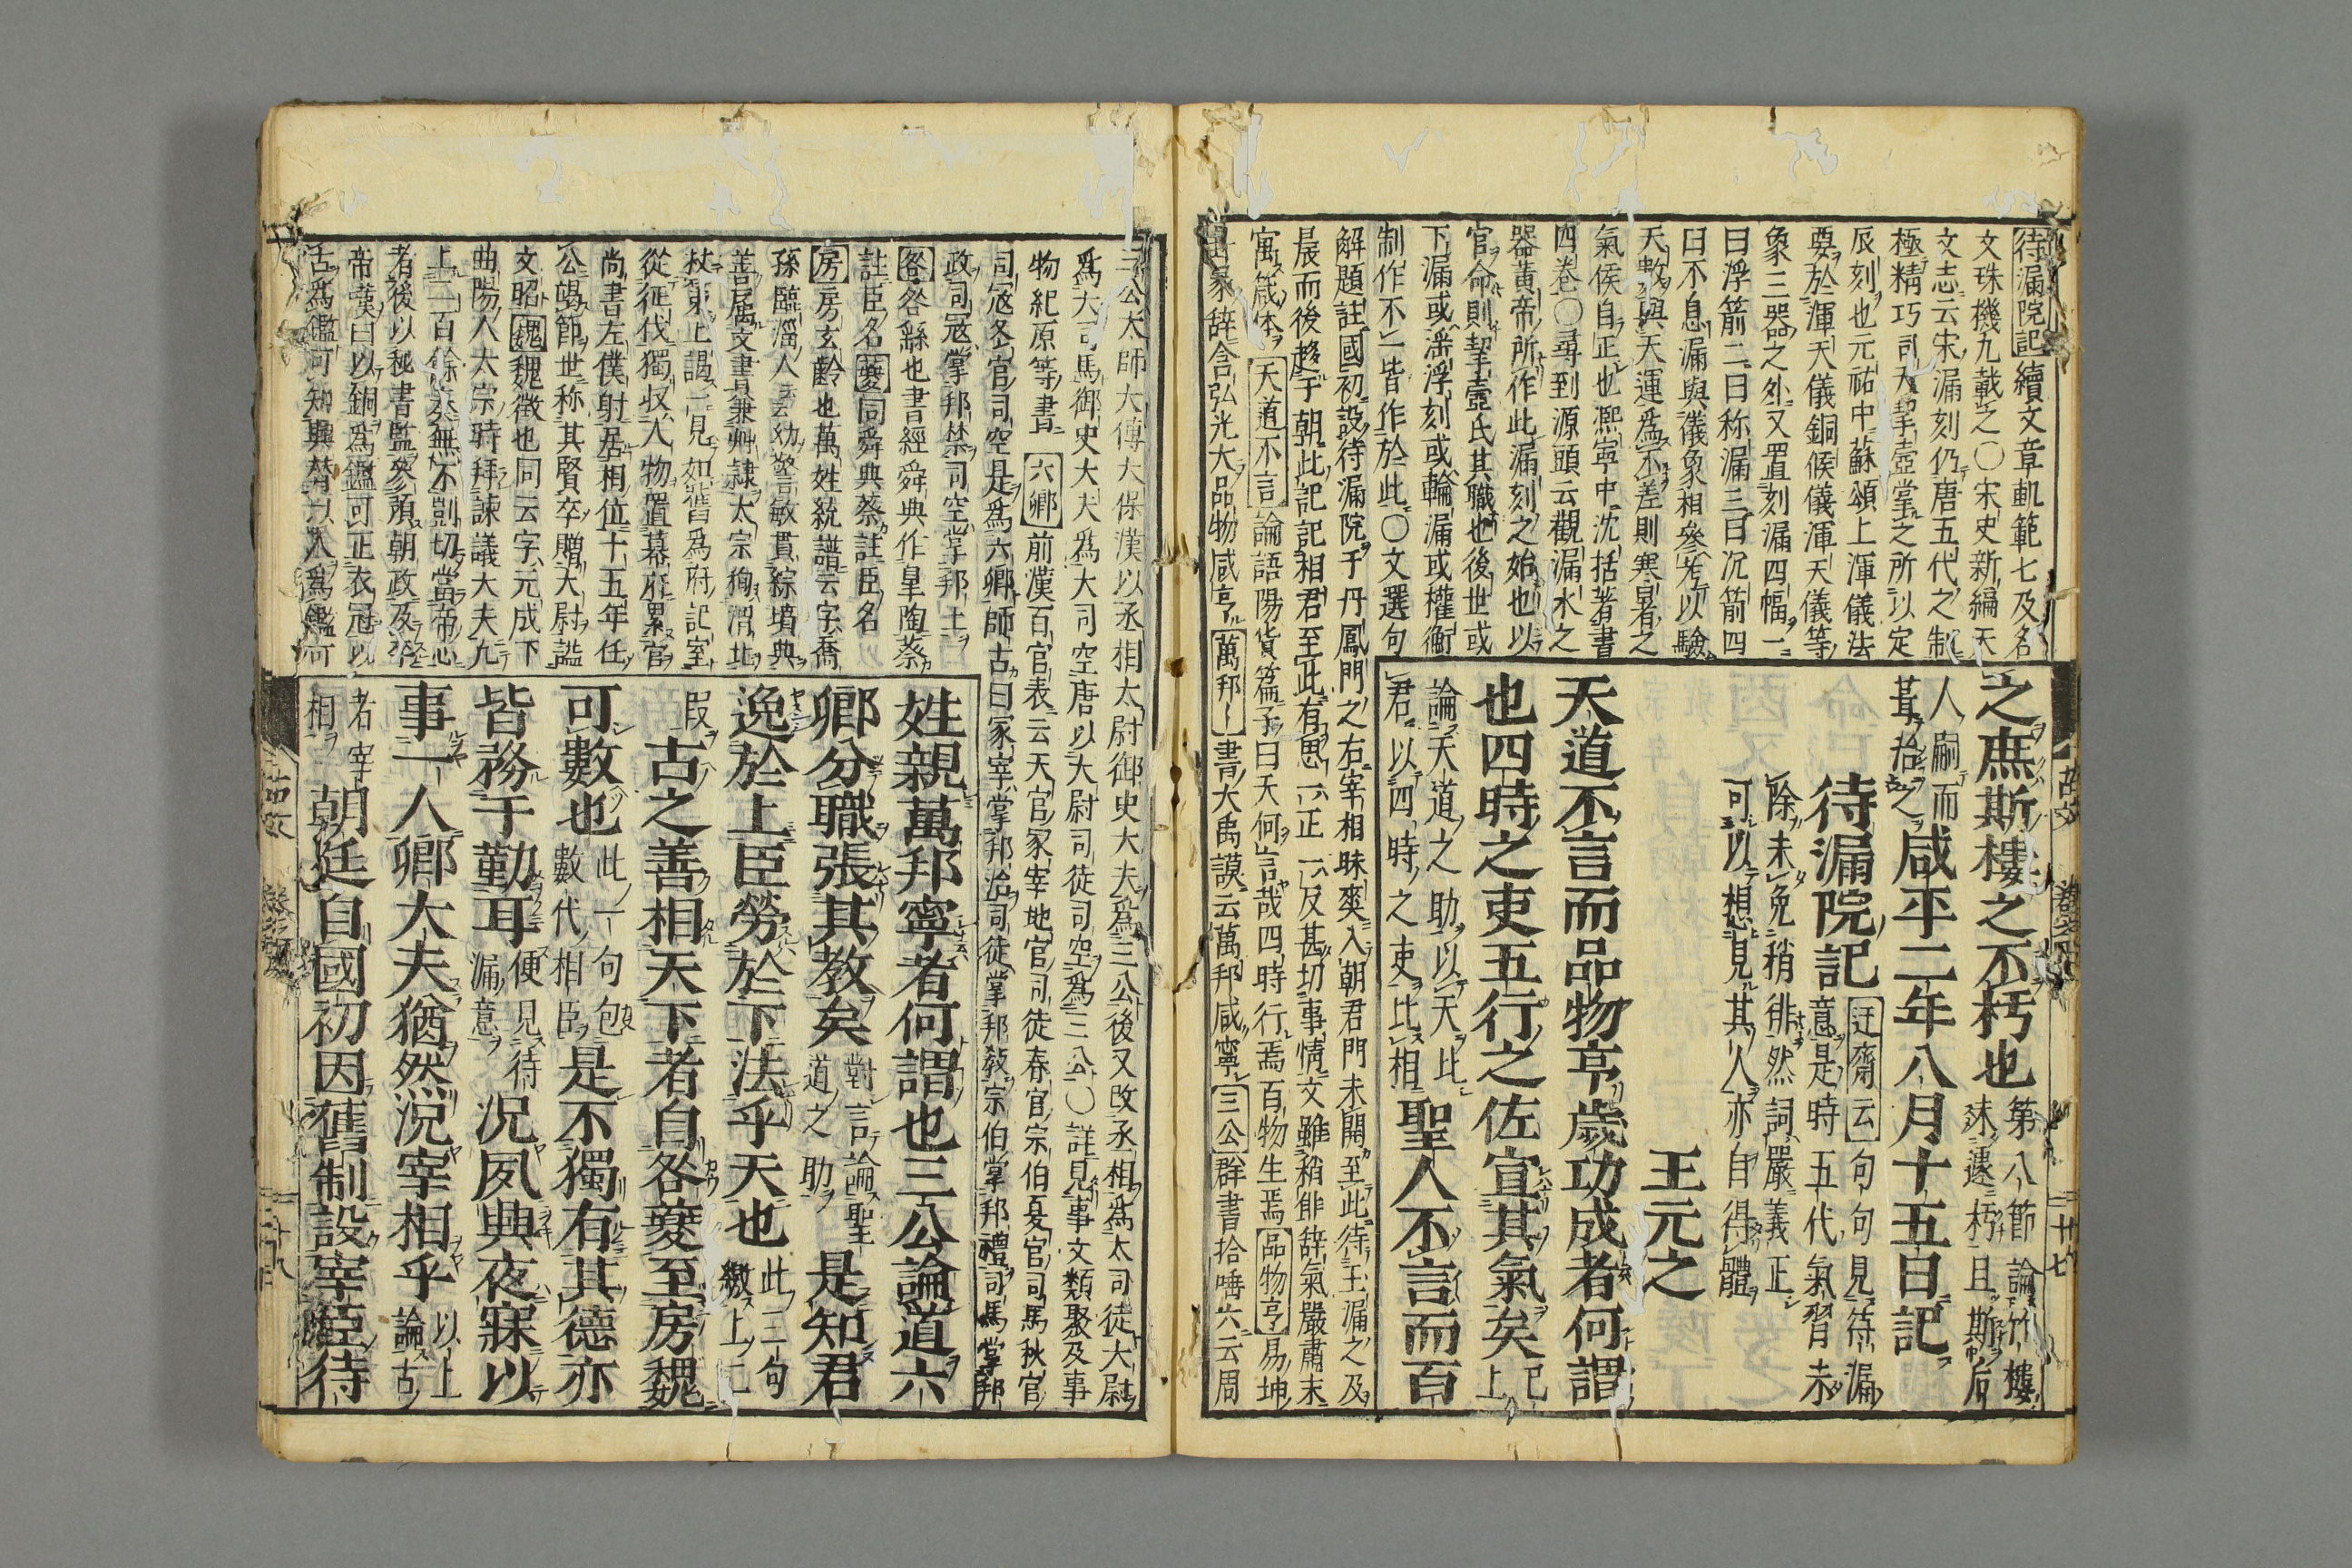 待漏院記續文章軌範七及名
文珠機九載之〇宋史新編天
文志云宋漏刻仍唐五代之制
極精巧司天挈壺掌之所以定
辰刻也元祐中蘇頌上渾儀法
要於渾天儀銅候儀渾天儀等
象三器之外又置刻漏四幅一
曰浮箭二曰称漏三曰沉箭四
曰不息漏與儀象相參考以驗
天數與天運爲不差則寒暑之
氣侯自正也熈寧中沈括著書
四卷〇尋到源頭云觀漏水之
器黄帝所作此漏刻之始也以
官命則挈壺氏其職也後世或
下漏或浮刻或輪漏或權衡
制作不一皆作於此〇文選句
解題註國初設待漏院于丹鳳門之右宰相昧爽入朝君門未開至此待玉漏之及
晨而後趍于朝此記記相君至此有思一正一反甚切事情文雖稍俳辞氣嚴肅末
寓箴体天道不言論語陽貨篇子曰天何言哉四時行焉百物生焉品物亨易坤
彖辞含弘光大品物咸亨萬邦書大禹謨云萬邦咸寧三公群書拾唾六云周
之庶斯樓之不朽也第八節論竹樓
速朽且斯后
人嗣而
葺之咸平二年八月十五日記
待漏院記迂齋云句句見待漏
意是時五代氣習未
除未免稍俳然詞嚴義正
可以想見其人亦自得體
王元之
天道不言而品物亨歲功成者何謂
也四時之吏五行之佐宣其氣矣
論天道之助以天比
君以四時之吏比相聖人不言而百
古文
廿七
三公太師大傳大保漢以丞相太尉御史大夫爲三公後又改丞相爲太司徒大尉
爲大司馬御史大夫爲大司空唐以大尉司徒司空爲三公〇詳見事文類聚及事
物紀原等書六卿前漢百官表云天官冢宰地官司徒春官宗伯夏官司馬秋官
司冦冬官司空是爲六卿師古曰冢宰掌邦治司徒掌邦教宗伯掌邦禮司馬掌邦
政司冦掌邦禁司空掌邦土
咎咎繇也書經舜典作皐陶蔡
註臣名夔同舜典蔡註臣名
房房玄齡也萬姓統譜云字喬
孫臨淄人幼警敏貫綜墳典
善属文書兼艸隷太宗狥渭北
杖策上謁一見如舊爲府記室
從征伐獨収人物置幕府累官
尚書左僕射居相位十五年任
公竭節世称其賢卒贈大尉謚
文昭魏魏徵也同云字元成下
曲陽人太宗時拜諫議大夫凢
上二百餘奏無不剴切當帝心
者後以秘書監參預朝政及卒
帝嘆曰以銅爲鑑可正衣冠以
古爲鑑可知興替以人爲鑑可
姓親萬邦寧者何謂也三公論道六
卿分職張其教矣對言論聖
道之助是知君
逸於上臣勞於下法乎天也此三句
繳上二
段古之善相天下者自咎夔至房魏
可數也此一句包
數代相臣是不獨有其德亦
皆務于勤耳便見待
漏意況夙興夜寐以
事一人卿大夫猶然況宰相乎以上
論古
者宰
相朝廷自國初因舊制設宰臣待